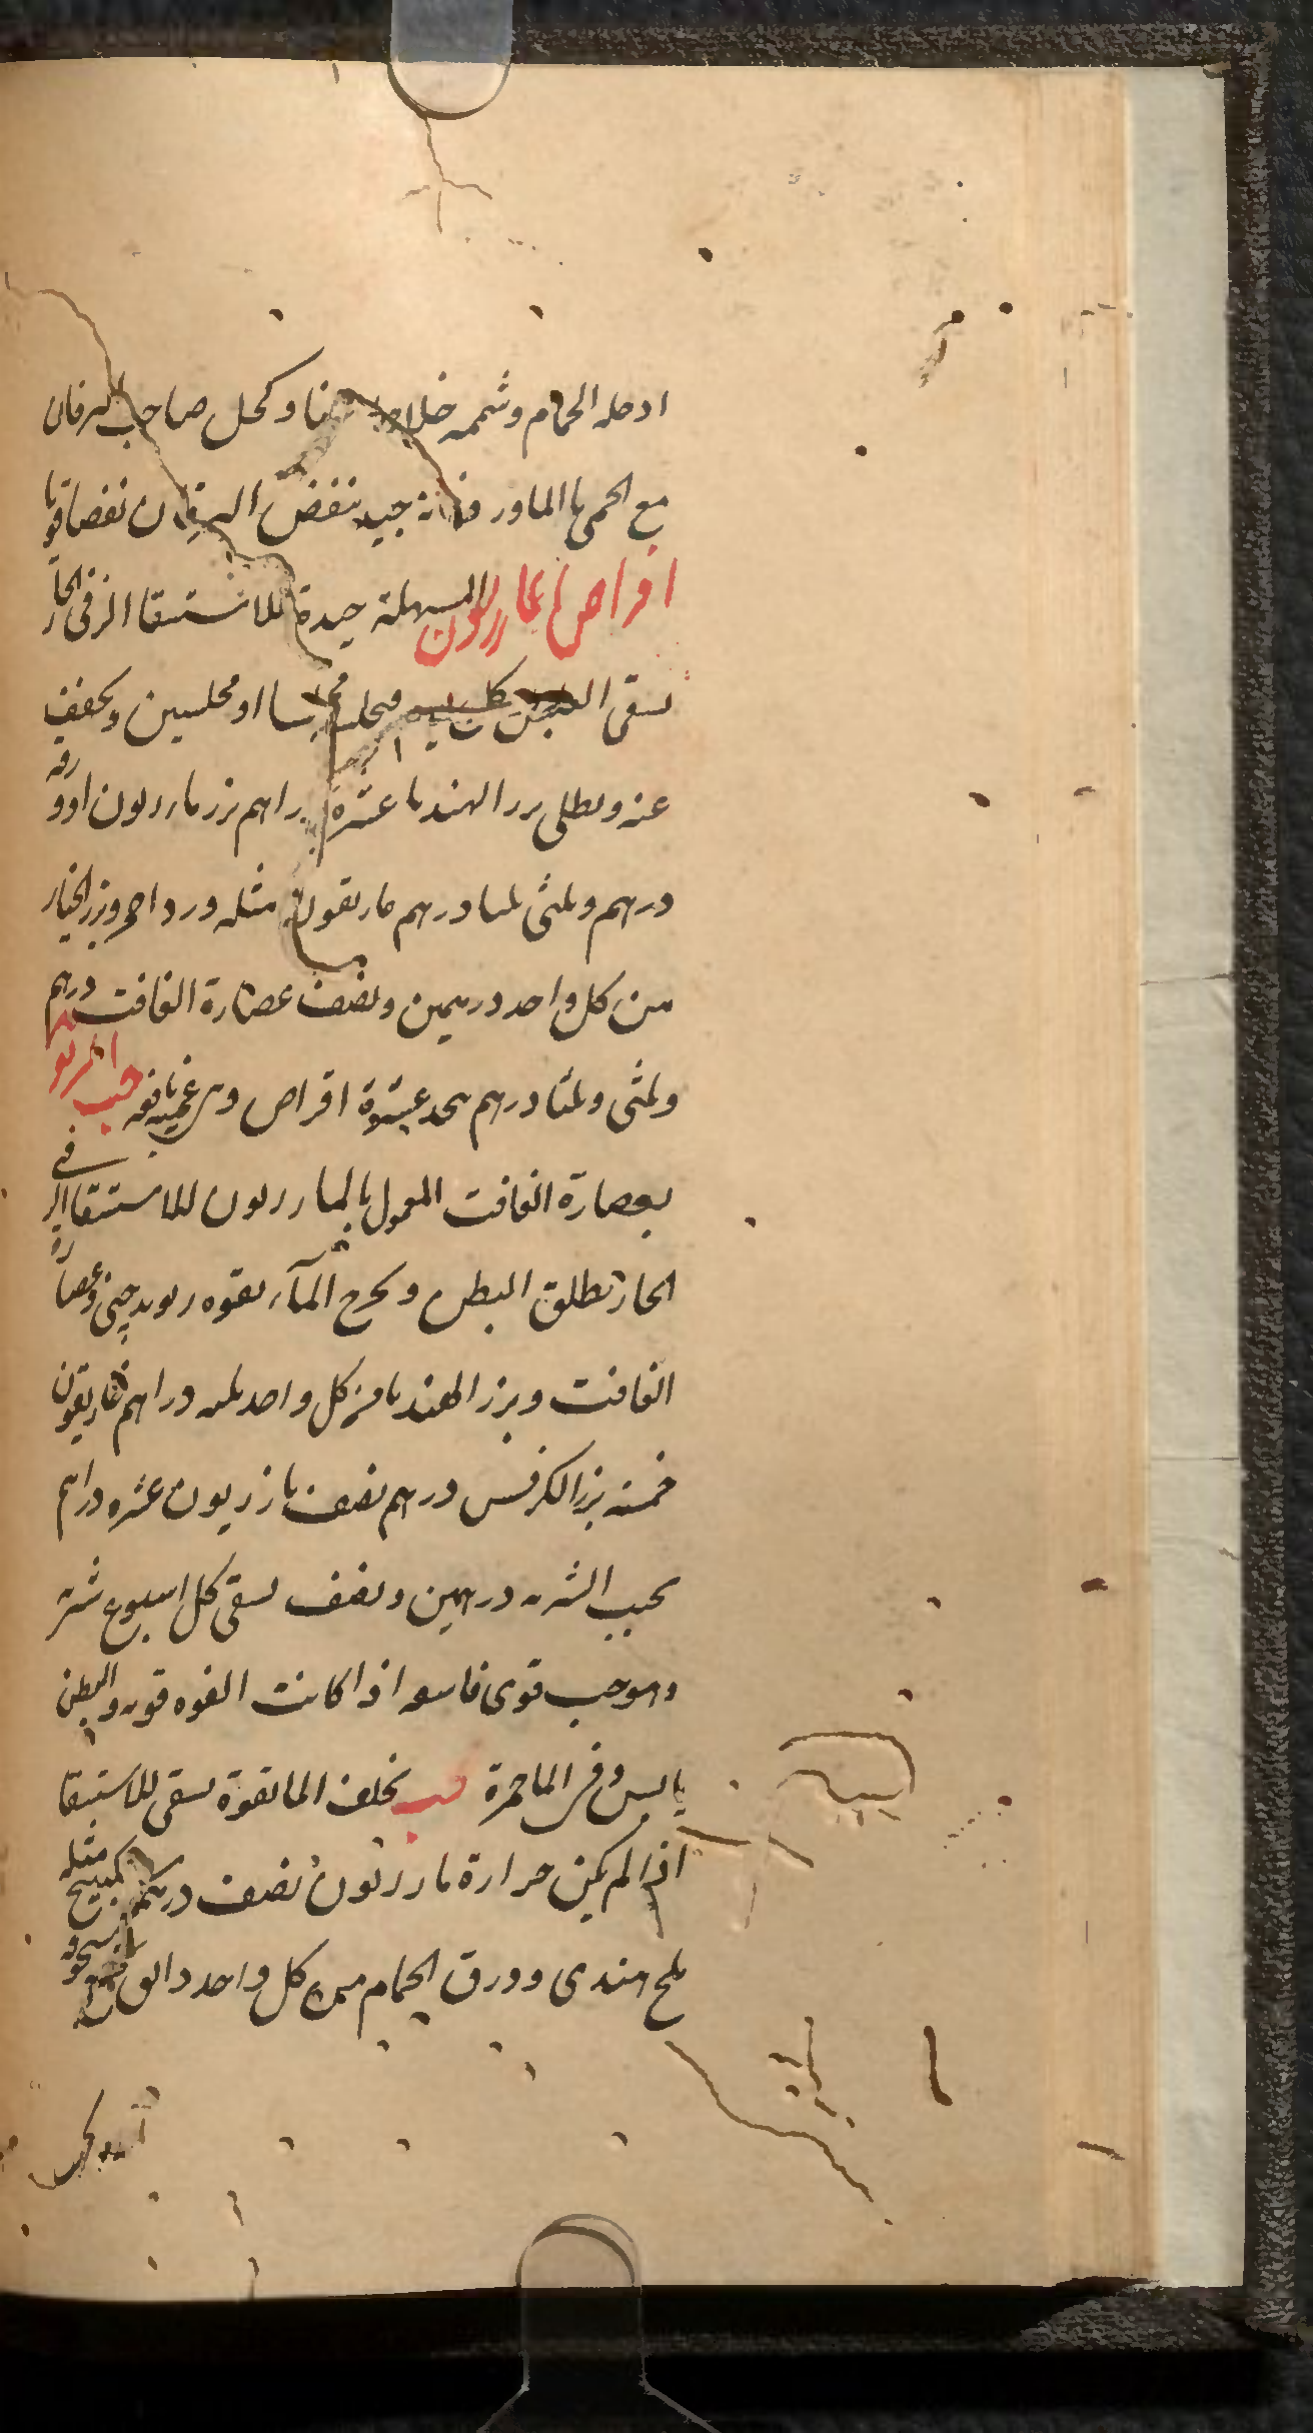 ادخله الحمام وشممه خلا وكحل صاحب اليرقان
مع الحمى بالماورد فانه جيد ينفض اليرقان نفضا قويا
اقراص المازريون المسهلة جيدة للاستسقا الزقى الحار
يسقى كل مجلسا او مجلسين ويخفف
عنه ويطلى بزر الهندبا عشرة دراهم بزر مازريون اوقيه
درهم وثلثى درهم غاريقون مثله ورد احمر وبزر الخيار
من كل واحد درهمين ونصف عصارة الغافت درهم
وثلثى درهم عشرة اقراص وهى نافعه حب
بعصارة الغافت المعمول بالمازريون للاستسقا الزقى
الحار يطلق البطن ويخرج المآء بقوه ريوند چينى وعصارة
الغافت وبزر الهندبا من كل واحد ثلثه دراهم غاريقون
خمسه بزر الكرفس درهم نصف مازريون عشره دراهم
يحبب الشربه درهمين ونصف يسقى كل اسبوع شربه
وهو حب قوى فاسقه اذا كانت القوه قويه والبطن
يابس وفى الما حمرة حب يخلف الما بقوة يسقى للاستسقا
اذا لم يكن حرارة مازريون نصف درهم سكبينج مثله
ملح هندى وورق الحمام من كل واحد دانق